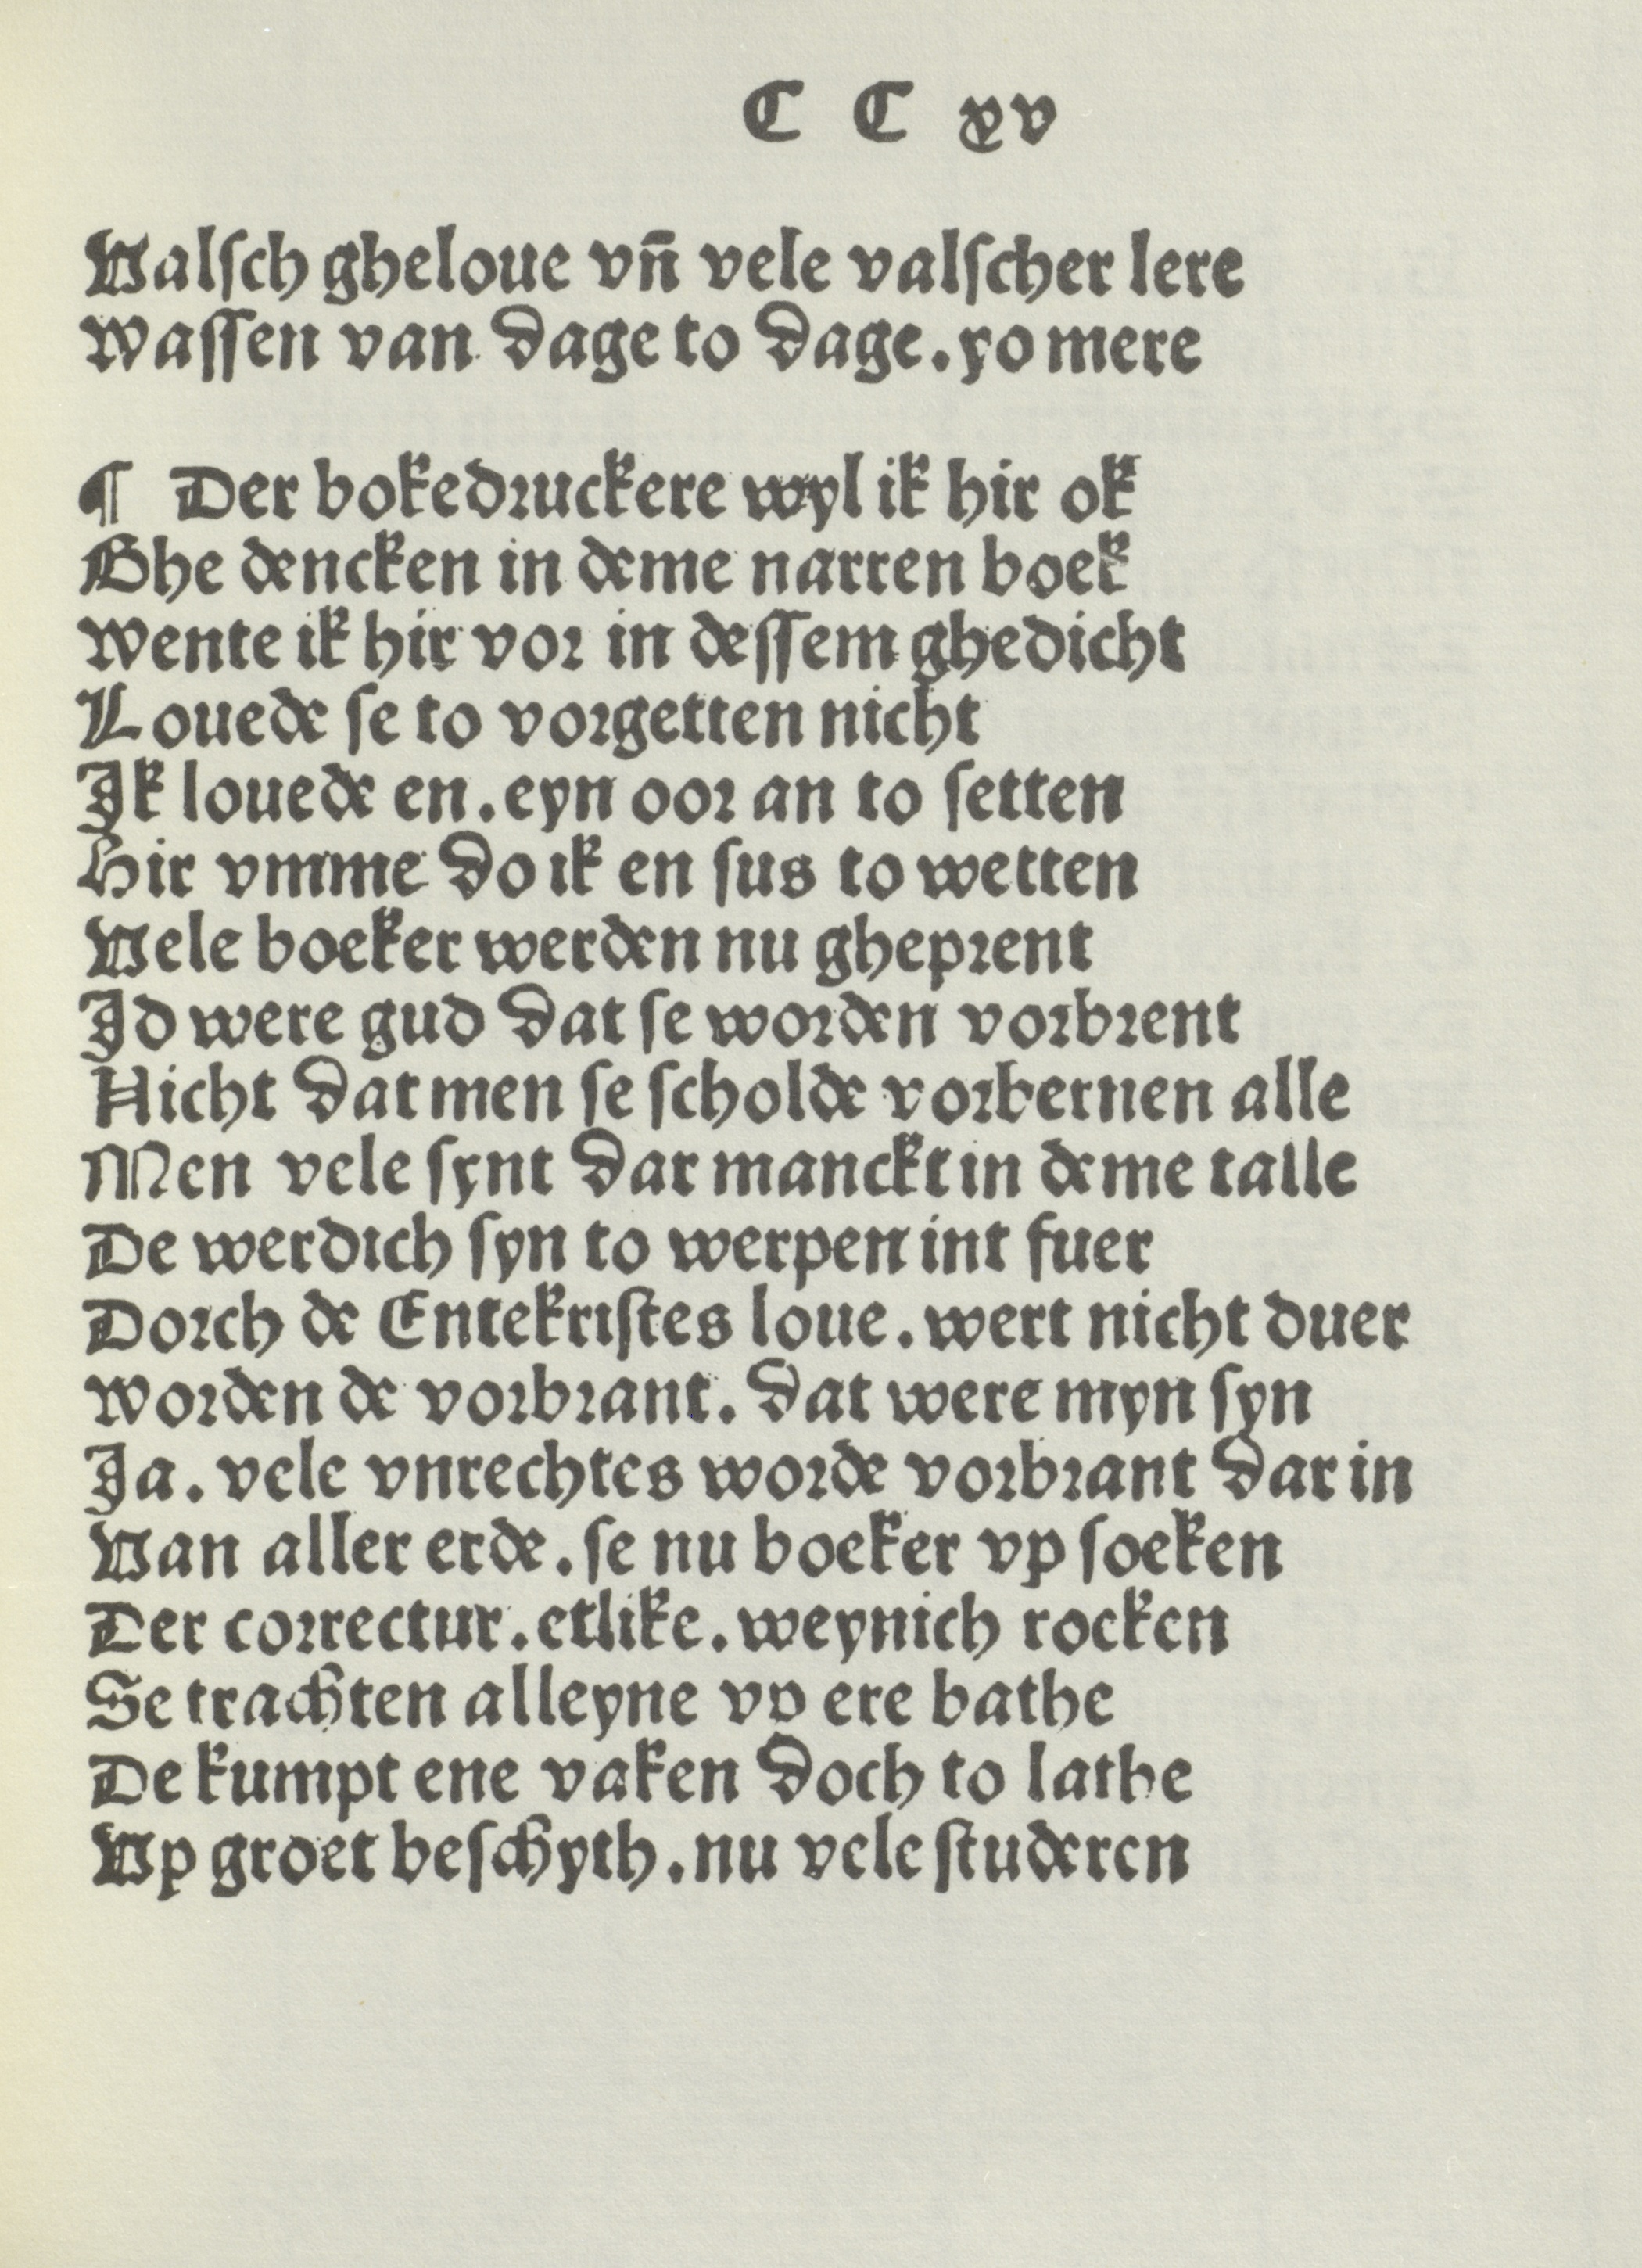 C C xv
Valsch gheloue vn̄ vele valscher lere
Wassen van dage to dage. yo mere
¶ Der bokedruckere wyl ik hir ok
Ghe dencken in deme narren boek
Wente ik hir vor in dessem ghedicht
Louede se to vorgetten nicht
Ik louede en. eyn oor an to setten
Hir vmme do ik en sus to wetten
Vele boeker werden nu gheprent
Id were gud dat se worden vorbrent
Nicht dat men se scholde vorbernen alle
Men vele synt dar manckt in deme talle
De werdich syn to werpen int fuer
Dorch de Entekristes loue. wert nicht duer
Worden de vorbrant. dat were myn syn
Ja. vele vnrechtes worde vorbrant dar in
Van aller erde. se nu boeker vp soeken
Der correctur. etlike. weynich rocken
Se trachten alleyne vp ere bathe
De kumpt ene vaken doch to lathe
Vp groet beschyth. nu vele studeren